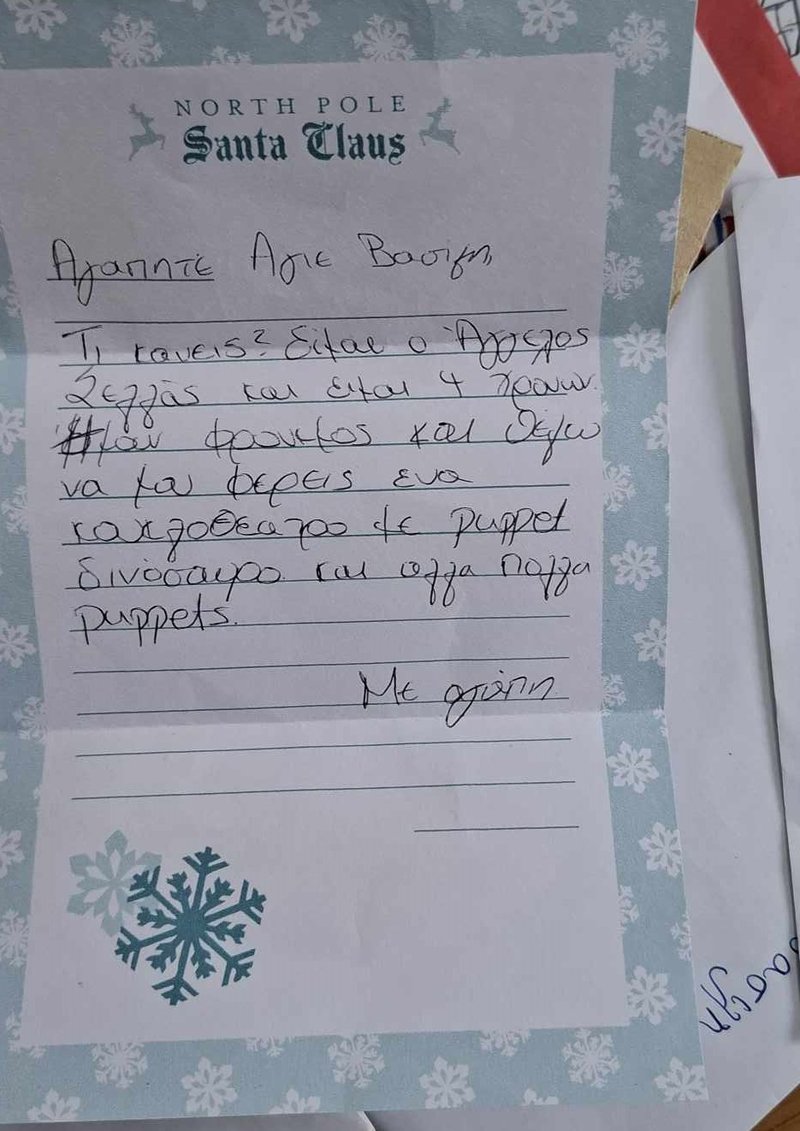 NORTH POLE
Santa Claus
Αγαπητέ Αγιε Βασιλη,
Τι κανεις? Είμαι ο Άγγελος
Σελλάς και ειμαι 4 χρονων.
Ήμουν φρονιμος και θέλω
να μου φερεις ενα
κουκλοθεατρο με puppet
δινόσαυρο και αλλα πολλα
puppets.
Με αγάπη